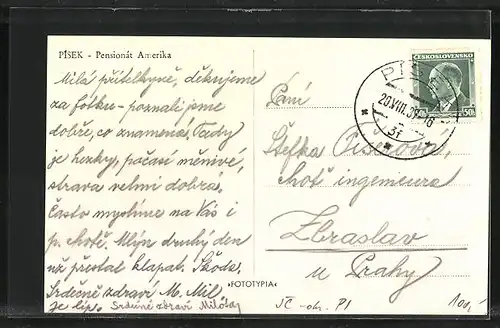 PÍSEK - Pensionát Amerika
Milá přítelkyně, děkujeme
za fotku - poznali jsme
dobře, co znamená. Tady
je hezky, počasí měnivé,
strava velmi dobrá,
často myslíme na Vás i
p. chotě. Mlýn druhý den
už přestal klapat. Škoda.
Srdečně zdraví M. Mil
je líp. Srdečně zdraví Milota
»FOTOTYPIA«
ČESKOSLOVENSKO
50h
PÍSEK
20.VIII.39-16
31
Paní
Štefka
choť ingenieura
Zbraslav
u Prahy
JČ-oh. PI
100,-